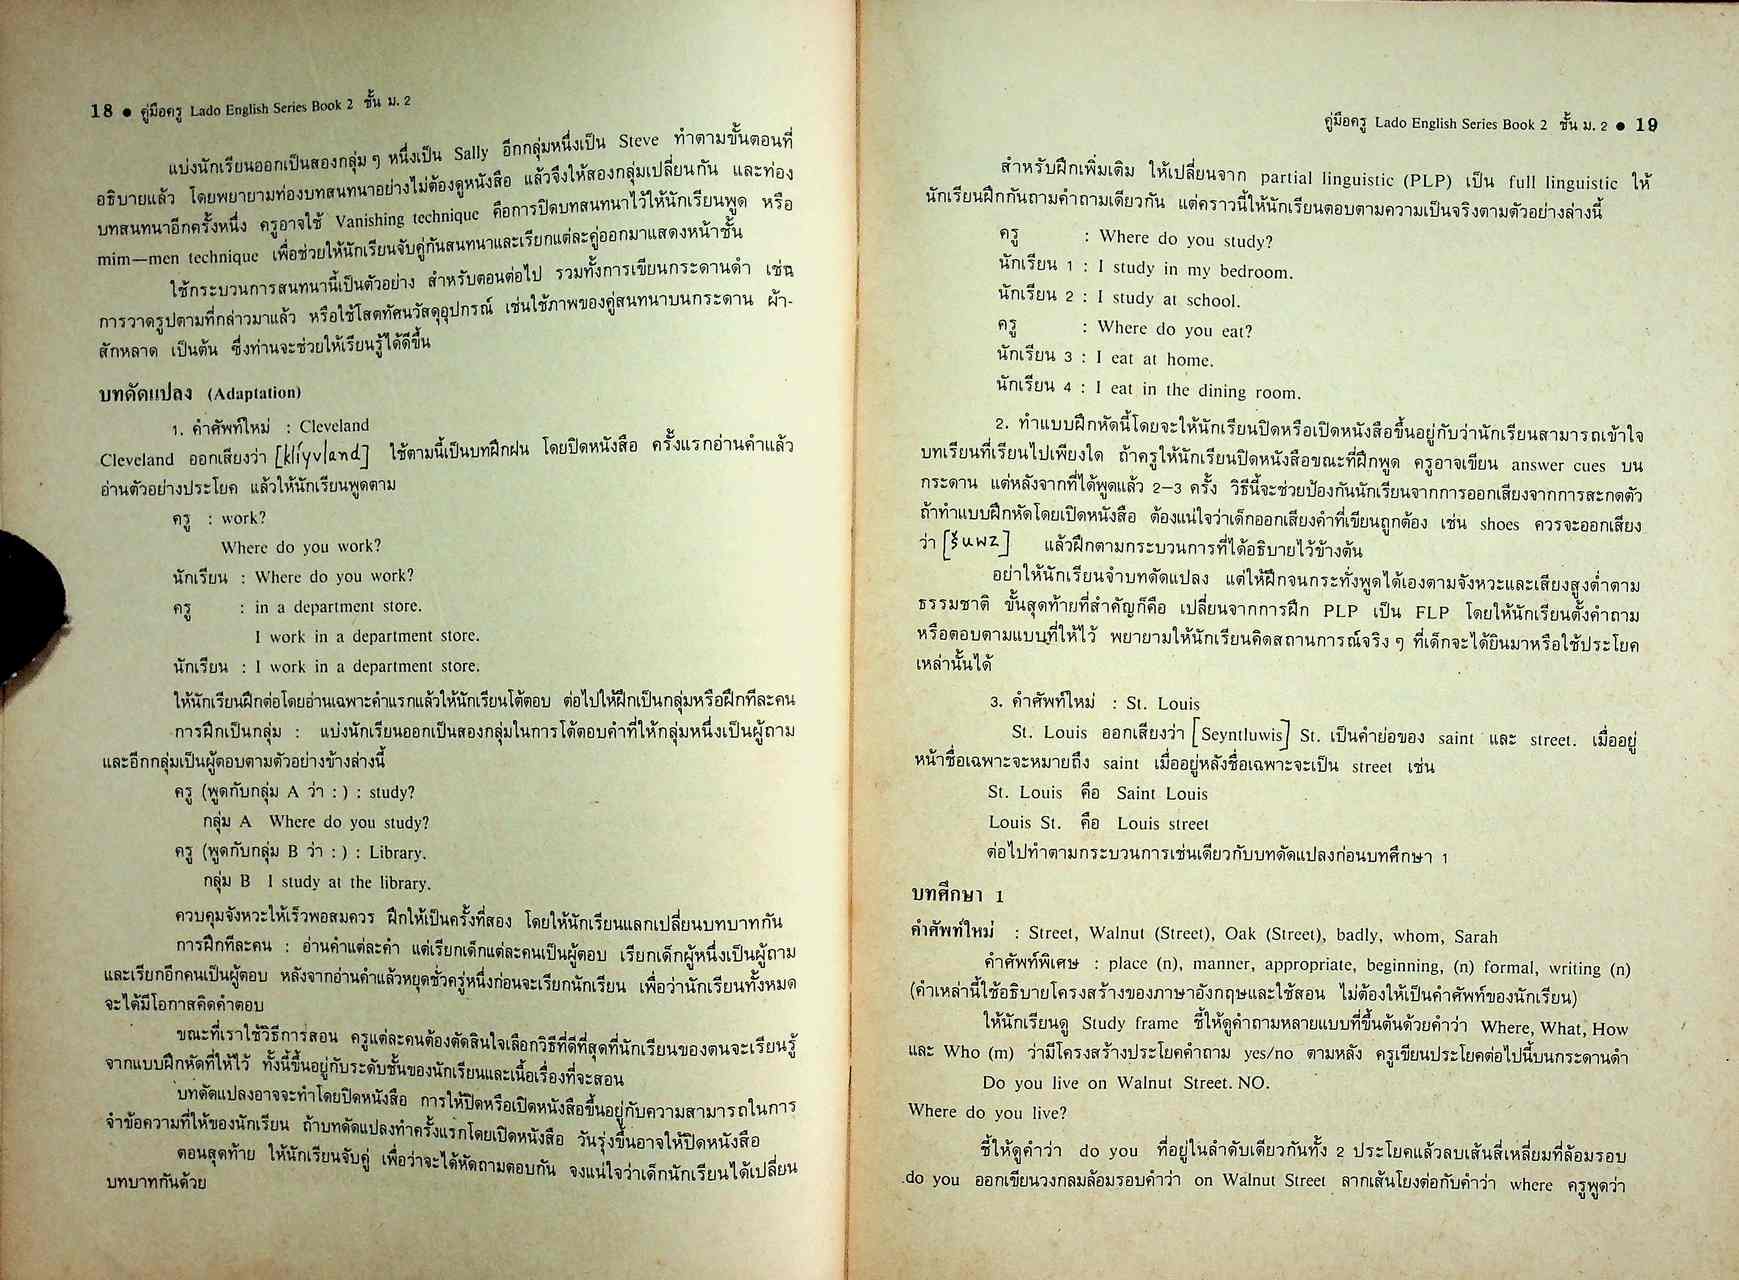 18 ● คู่มือครู Lado English Series Book 2 ชั้น ม. 2
แบ่งนักเรียนออกเป็นสองกลุ่ม ๆ หนึ่งเป็น Sally อีกกลุ่มหนึ่งเป็น Steve ทำตามขั้นตอนที่
อธิบายแล้ว โดยพยายามท่องบทสนทนาอย่างไม่ต้องดูหนังสือ แล้วจึงให้สองกลุ่มเปลี่ยนกัน และท่อง
บทสนทนาอีกครั้งหนึ่ง ครูอาจใช้ Vanishing technique คือการปิดบทสนทนาไว้ให้นักเรียนพูด หรือ
mim—men technique เพื่อช่วยให้นักเรียนจับคู่กันสนทนาและเรียกแต่ละคู่ออกมาแสดงหน้าชั้น
ใช้กระบวนการสนทนานี้เป็นตัวอย่าง สำหรับตอนต่อไป รวมทั้งการเขียนกระดานดำ เช่น
การวาดรูปตามที่กล่าวมาแล้ว หรือใช้โสตทัศนวัสดุอุปกรณ์ เช่นใช้ภาพของคู่สนทนาบนกระดาน ผ้า-
สักหลาด เป็นต้น ซึ่งท่านจะช่วยให้เรียนรู้ได้ดีขึ้น
บทดัดแปลง (Adaptation)
1. คำศัพท์ใหม่ : Cleveland
Cleveland ออกเสียงว่า [klíyvland] ใช้ตามนี้เป็นบทฝึกฝน โดยปิดหนังสือ ครั้งแรกอ่านคำแล้ว
อ่านตัวอย่างประโยค แล้วให้นักเรียนพูดตาม
ครู : work?
Where do you work?
นักเรียน : Where do you work?
ครู : in a department store.
I work in a department store.
นักเรียน : I work in a department store.
ให้นักเรียนฝึกต่อโดยอ่านเฉพาะคำแรกแล้วให้นักเรียนโต้ตอบ ต่อไปให้ฝึกเป็นกลุ่มหรือฝึกทีละคน
การฝึกเป็นกลุ่ม : แบ่งนักเรียนออกเป็นสองกลุ่มในการโต้ตอบคำที่ให้กลุ่มหนึ่งเป็นผู้ถาม
และอีกกลุ่มเป็นผู้ตอบตามตัวอย่างข้างล่างนี้
ครู (พูดกับกลุ่ม A ว่า : ) : study?
กลุ่ม A Where do you study?
ครู (พูดกับกลุ่ม B ว่า : ) : Library.
กลุ่ม B I study at the library.
ควบคุมจังหวะให้เร็วพอสมควร ฝึกให้เป็นครั้งที่สอง โดยให้นักเรียนแลกเปลี่ยนบทบาทกัน
การฝึกทีละคน : อ่านคำแต่ละคำ แต่เรียกเด็กแต่ละคนเป็นผู้ตอบ เรียกเด็กผู้หนึ่งเป็นผู้ถาม
และเรียกอีกคนเป็นผู้ตอบ หลังจากอ่านคำแล้วหยุดชั่วครู่หนึ่งก่อนจะเรียกนักเรียน เพื่อว่านักเรียนทั้งหมด
จะได้มีโอกาสคิดคำตอบ
ขณะที่เราใช้วิธีการสอน ครูแต่ละคนต้องตัดสินใจเลือกวิธีที่ดีที่สุดที่นักเรียนของตนจะเรียนรู้
จากแบบฝึกหัดที่ให้ไว้ ทั้งนี้ขึ้นอยู่กับระดับชั้นของนักเรียนและเนื้อเรื่องที่จะสอน
บทดัดแปลงอาจจะทำโดยปิดหนังสือ การให้ปิดหรือเปิดหนังสือขึ้นอยู่กับความสามารถในการ
จำข้อความที่ให้ของนักเรียน ถ้าบทดัดแปลงทำครั้งแรกโดยเปิดหนังสือ วันรุ่งขึ้นอาจให้ปิดหนังสือ
ตอนสุดท้าย ให้นักเรียนจับคู่ เพื่อว่าจะได้หัดถามตอบกัน จงแน่ใจว่าเด็กนักเรียนได้เปลี่ยน
บทบาทกันด้วย
คู่มือครู Lado English Series Book 2 ชั้น ม. 2 ● 19
สำหรับฝึกเพิ่มเติม ให้เปลี่ยนจาก partial linguistic (PLP) เป็น full linguistic ให้
นักเรียนฝึกกันถามคำถามเดียวกัน แต่คราวนี้ให้นักเรียนตอบตามความเป็นจริงตามตัวอย่างล่างนี้
ครู : Where do you study?
นักเรียน 1 : I study in my bedroom.
นักเรียน 2 : I study at school.
ครู : Where do you eat?
นักเรียน 3 : I eat at home.
นักเรียน 4 : I eat in the dining room.
2. ทำแบบฝึกหัดนี้โดยจะให้นักเรียนปิดหรือเปิดหนังสือขึ้นอยู่กับว่านักเรียนสามารถเข้าใจ
บทเรียนที่เรียนไปเพียงใด ถ้าครูให้นักเรียนปิดหนังสือขณะที่ฝึกพูด ครูอาจเขียน answer cues บน
กระดาน แต่หลังจากที่ได้พูดแล้ว 2—3 ครั้ง วิธีนี้จะช่วยป้องกันนักเรียนจากการออกเสียงจากการสะกดตัว
ถ้าทำแบบฝึกหัดโดยเปิดหนังสือ ต้องแน่ใจว่าเด็กออกเสียงคำที่เขียนถูกต้อง เช่น shoes ควรจะออกเสียง
ว่า [šuwz] แล้วฝึกตามกระบวนการที่ได้อธิบายไว้ข้างต้น
อย่าให้นักเรียนจำบทดัดแปลง แต่ให้ฝึกจนกระทั่งพูดได้เองตามจังหวะและเสียงสูงต่ำตาม
ธรรมชาติ ขั้นสุดท้ายที่สำคัญก็คือ เปลี่ยนจากการฝึก PLP เป็น FLP โดยให้นักเรียนตั้งคำถาม
หรือตอบตามแบบที่ให้ไว้ พยายามให้นักเรียนคิดสถานการณ์จริง ๆ ที่เด็กจะได้ยินมาหรือใช้ประโยค
เหล่านั้นได้
3. คำศัพท์ใหม่ : St. Louis
St. Louis ออกเสียงว่า [Seyntluwis] St. เป็นคำย่อของ saint และ street. เมื่ออยู่
หน้าชื่อเฉพาะจะหมายถึง saint เมื่ออยู่หลังชื่อเฉพาะจะเป็น street เช่น
St. Louis คือ Saint Louis
Louis St. คือ Louis street
ต่อไปทำตามกระบวนการเช่นเดียวกับบทดัดแปลงก่อนบทศึกษา 1
บทศึกษา 1
คำศัพท์ใหม่ : Street, Walnut (Street), Oak (Street), badly, whom, Sarah
คำศัพท์พิเศษ : place (n), manner, appropriate, beginning, (n) formal, writing (n)
(คำเหล่านี้ใช้อธิบายโครงสร้างของภาษาอังกฤษและใช้สอน ไม่ต้องให้เป็นคำศัพท์ของนักเรียน)
ให้นักเรียนดู Study frame ชี้ให้ดูคำถามหลายแบบที่ขึ้นต้นด้วยคำว่า Where, What, How
และ Who (m) ว่ามีโครงสร้างประโยคคำถาม yes/no ตามหลัง ครูเขียนประโยคต่อไปนี้บนกระดานดำ
Do you live on Walnut Street. NO.
Where do you live?
ชี้ให้ดูคำว่า do you ที่อยู่ในลำดับเดียวกันทั้ง 2 ประโยคแล้วลบเส้นสี่เหลี่ยมที่ล้อมรอบ
do you ออกเขียนวงกลมล้อมรอบคำว่า on Walnut Street ลากเส้นโยงต่อกับคำว่า where ครูพูดว่า